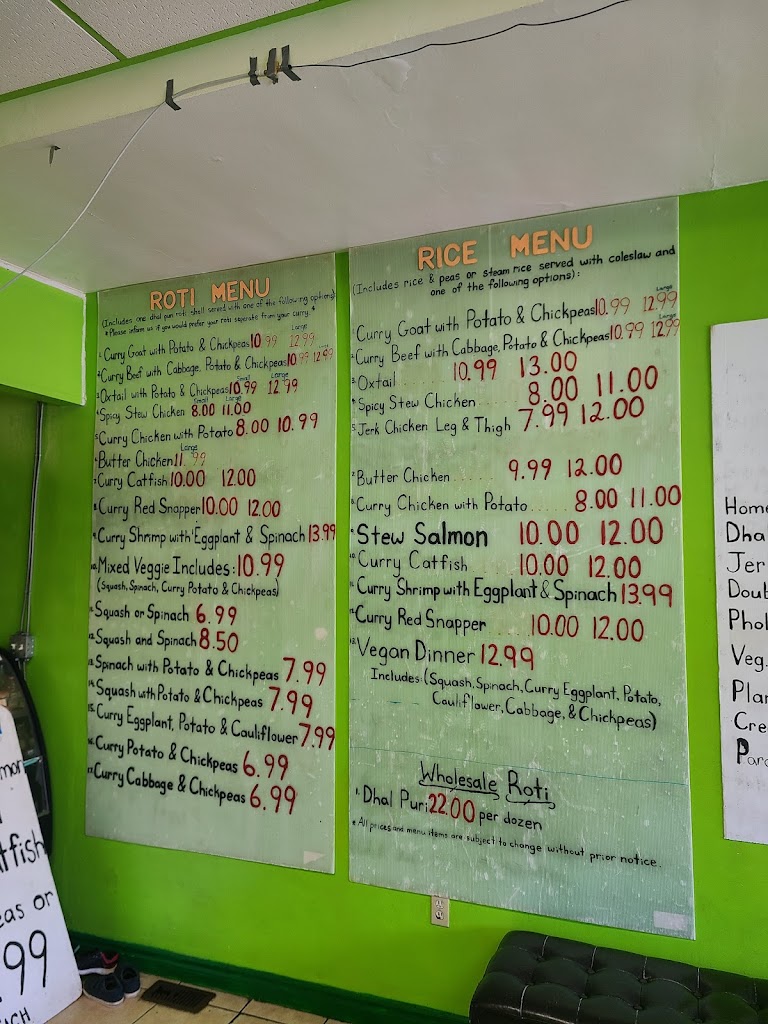 ROTI MENU
(Includes one dhal puri roti shell served with one of the following options)
*Please inform us if you would prefer your roti separate from your curry.*
Large
1. Curry Goat with Potato & Chickpeas 10.99 12.99
2. Curry Beef with Cabbage, Potato & Chickpeas 10.99 12.99
Small Large
3. Oxtail with Potato & Chickpeas 10.99 12.99
Small Large
4. Spicy Stew Chicken 8.00 11.00
5. Curry Chicken with Potato 8.00 10.99
Large
6. Butter Chicken 11.99
7. Curry Catfish 10.00 12.00
8. Curry Red Snapper 10.00 12.00
9. Curry Shrimp with Eggplant & Spinach 13.99
10. Mixed Veggie Includes: 10.99
(Squash, Spinach, Curry Potato & Chickpeas)
11. Squash or Spinach 6.99
12. Squash and Spinach 8.50
13. Spinach with Potato & Chickpeas 7.99
14. Squash with Potato & Chickpeas 7.99
15. Curry Eggplant, Potato & Cauliflower 7.99
16. Curry Potato & Chickpeas 6.99
17. Curry Cabbage & Chickpeas 6.99
RICE MENU
(Includes rice & peas or steam rice served with coleslaw and
one of the following options):
Large
1. Curry Goat with Potato & Chickpeas 10.99 12.99
Large
2. Curry Beef with Cabbage, Potato & Chickpeas 10.99 12.99
3. Oxtail ...... 10.99 13.00
4. Spicy Stew Chicken ...... 8.00 11.00
5. Jerk Chicken Leg & Thigh 7.99 12.00
7. Butter Chicken ...... 9.99 12.00
8. Curry Chicken with Potato ..... 8.00 11.00
9. Stew Salmon 10.00 12.00
10. Curry Catfish ..... 10.00 12.00
11. Curry Shrimp with Eggplant & Spinach 13.99
12. Curry Red Snapper ..... 10.00 12.00
13. Vegan Dinner 12.99
Includes: (Squash, Spinach, Curry Eggplant, Potato,
Cauliflower, Cabbage, & Chickpeas)
Wholesale Roti
1. Dhal Puri 22.00 per dozen
* All prices and menu items are subject to change without prior notice.
Home
Dhal
Jer
Doub
Phol
Veg.
Plan
Cre
Para
mon
tfish
eas or
.99
ICH